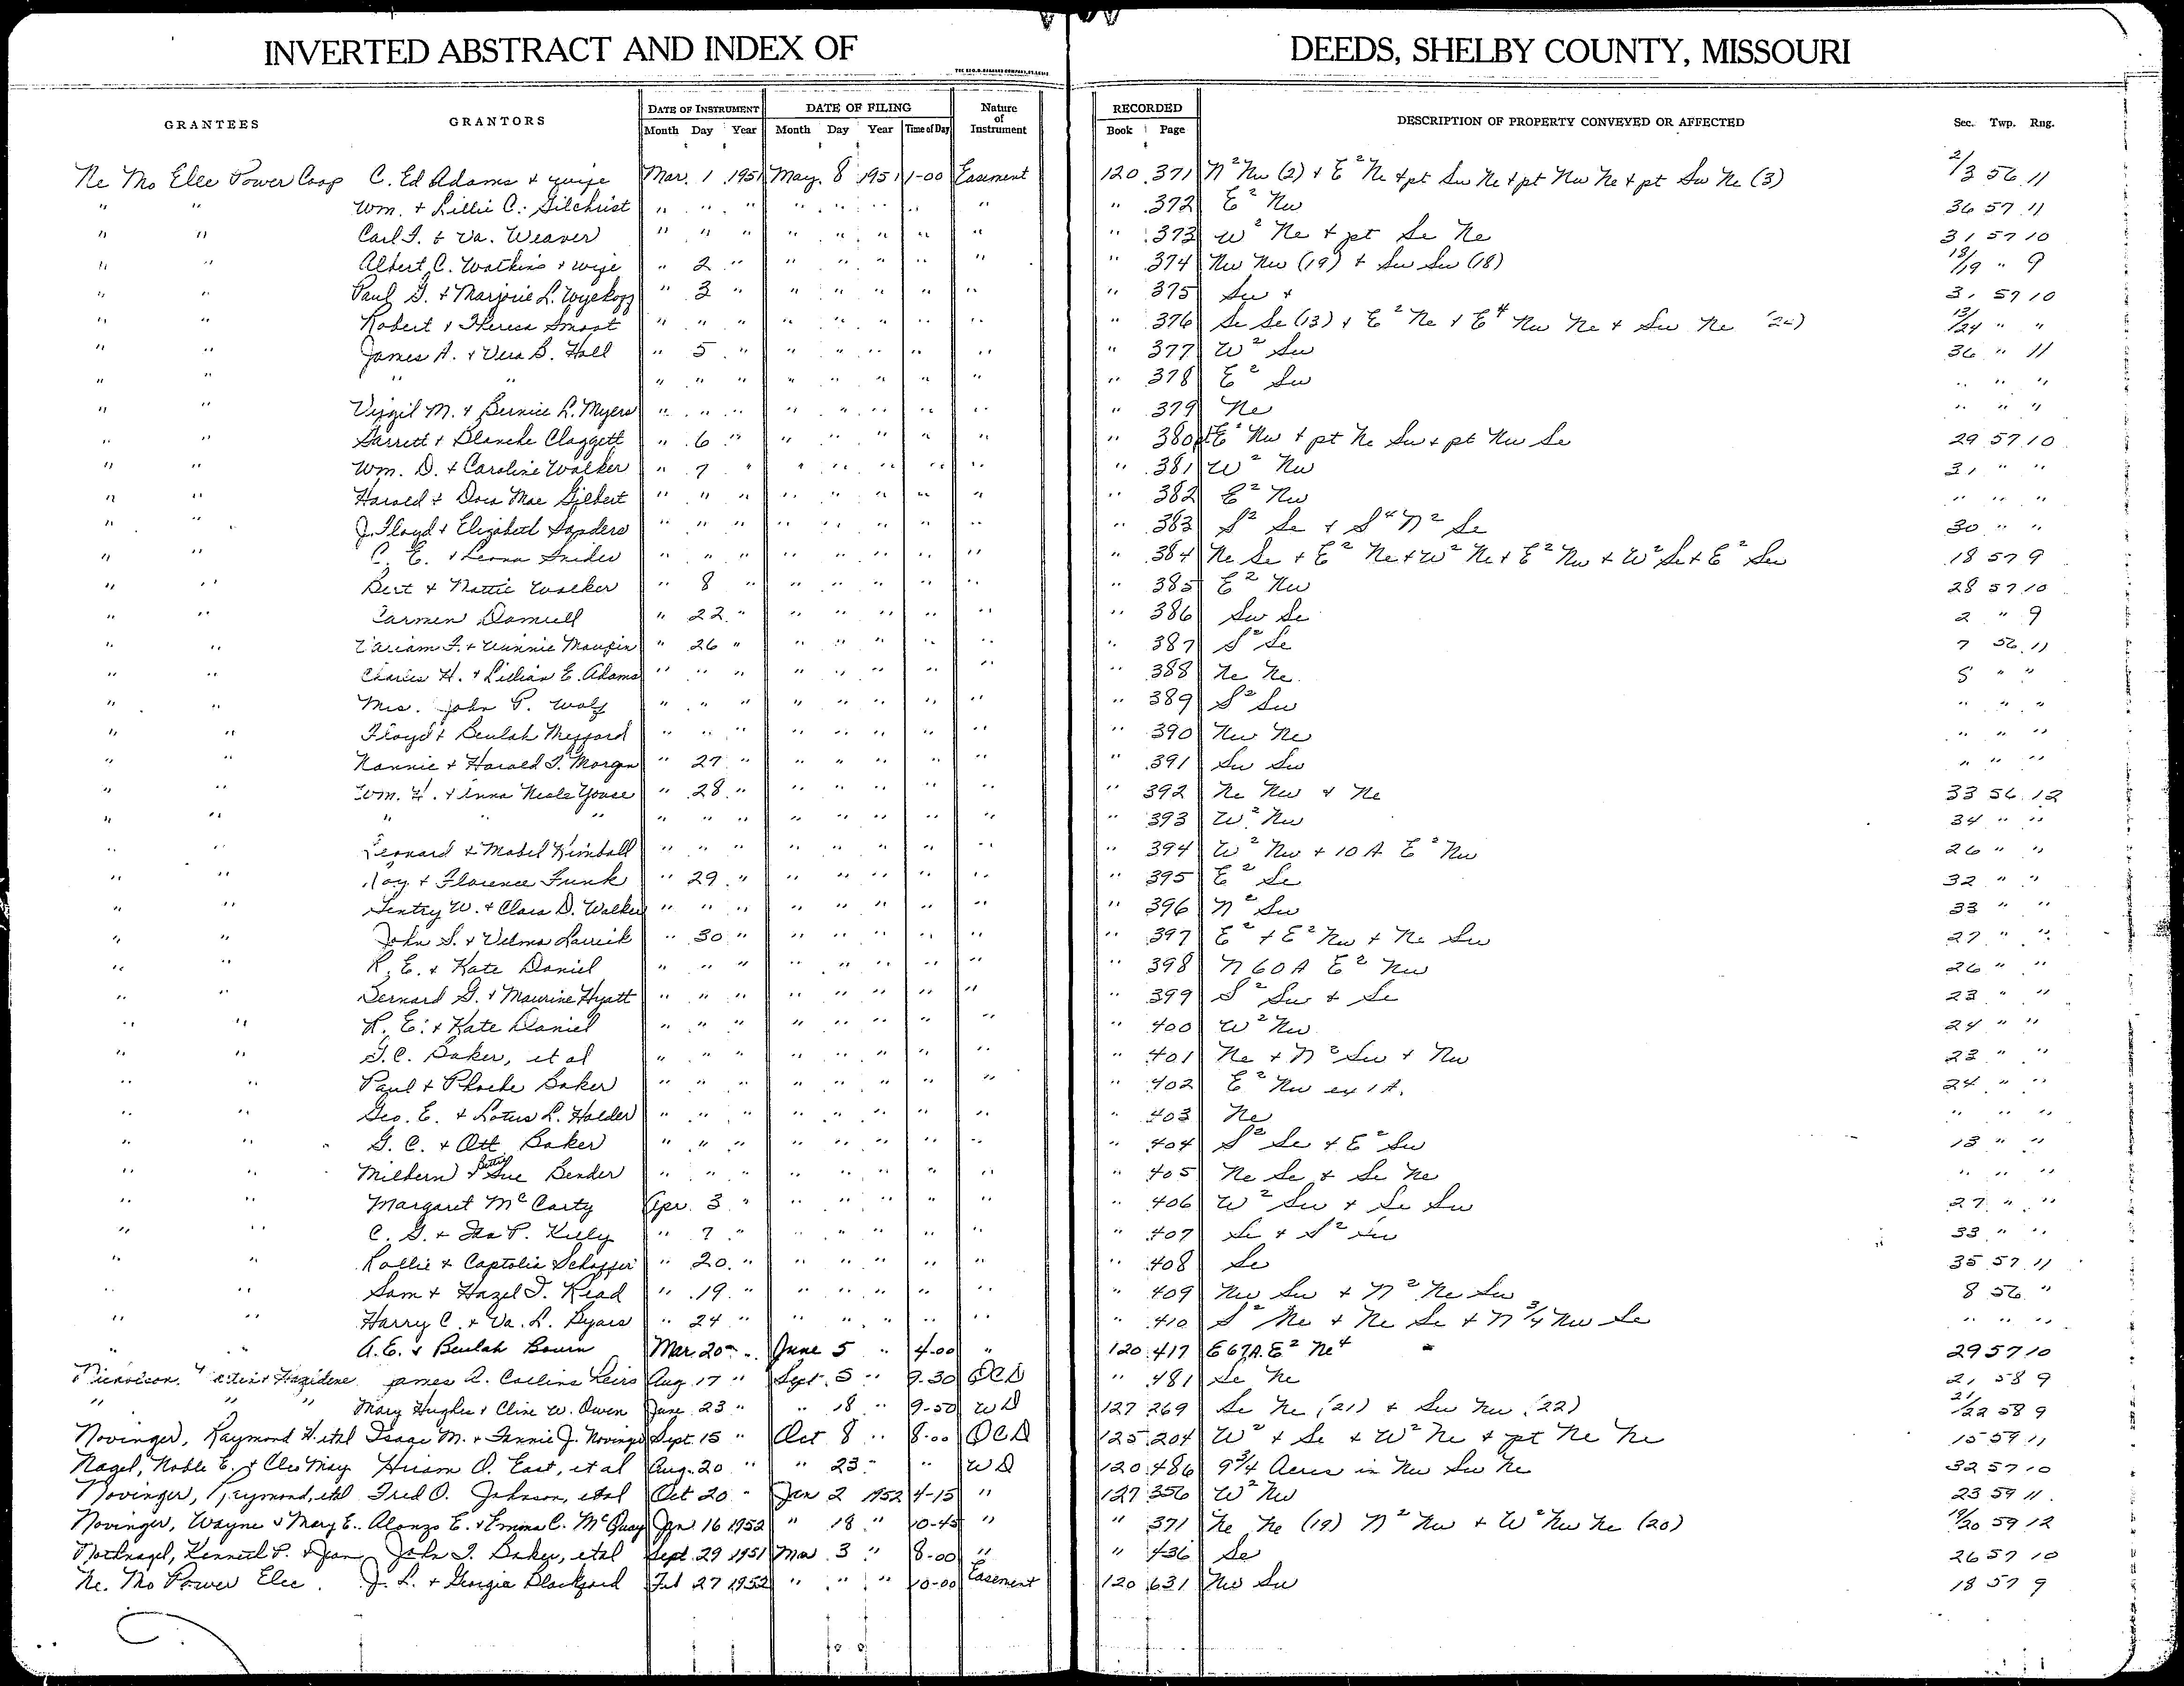 INVERTED ABSTRACT AND INDEX OF DEEDS, SHELBY COUNTY, MISSOURI
GRANTEES GRANTORS DATE OF INSTRUMENT DATE OF FILING Nature of Instrument RECORDED DESCRIPTION OF PROPERTY CONVEYED OR AFFECTED Sec. Twp. Rng.
Month Day Year Month Day Year Time of Day Book Page
Ne Mo Elec Power Coop C. Ed Adams + wife Mar. 1 1951 May 8 1951 1-00 Easement 120 371 N² Nw (2) + E² Ne + pt Sw Ne + pt Nw Ne + pt Sw Ne (3) 2/3 56 11
" " Wm. + Lillie C. Gilchrist " " " " " " " " " 372 E² Nw 36 57 11
" " Carl F. + Va. Weaver " " " " " " " " " 373 W² Ne + pt Se Ne 31 57 10
" " Albert C. Watkins + wife " 2 " " " " " " " 374 Nw Nw (19) + Sw Sw (18) 18/19 " 9
" " Paul G. + Marjorie L. Wyekoff " 3 " " " " " " " 375 Sw + 31 57 10
" " Robert + Theresa Smoot " " " " " " " " " 376 Se Se (13) + E² Ne + E⁴ Nw Ne + Sw Ne (24) 13/24 " "
" " James A. + Vera B. Hall " 5 " " " " " " " 377 W² Sw 36 " 11
" " " " " " " " " " " " " 378 E² Sw " " "
" " Virgil M. + Bernice L. Myers " " " " " " " " " 379 Ne " " "
" " Garrett + Blanche Claggett " 6 " " " " " " " 380 pt E² Nw + pt Ne Sw + pt Nw Se 29 57 10
" " Wm. D. + Caroline Walker " 7 " " " " " " " 381 W² Nw 31 " "
" " Harold + Dora Mae Gilbert " " " " " " " " " 382 E² Nw " " "
" " J. Floyd + Elizabeth Sanders " " " " " " " " " 383 S² Se + S⁴ N² Se 30 " "
" " C. E. + Leona Snider " " " " " " " " " 384 Ne Se + E² Ne + W² Ne + E² Nw + W² Se + E² Sw 18 57 9
" " Bert + Nattie Walker " 8 " " " " " " " 385 E² Nw 28 57 10
" " Carmen Damrell " 22 " " " " " " " 386 Sw Se 2 " 9
" " F. + Winnie Maupin " 26 " " " " " " " 387 S² Se 7 56 11
" " Charles H. + Lillian E. Adams " " " " " " " " " 388 Ne Ne 8 " "
" " Mrs. John P. Wolf " " " " " " " " " 389 S² Sw " " "
" " Floyd + Beulah Meffard " " " " " " " " " 390 Nw Ne " " "
" " Nannie + Harold T. Morgan " 27 " " " " " " " 391 Sw Sw " " "
" " Wm. H. + Anna Neale Youse " 28 " " " " " " " 392 Ne Nw + Ne 33 56 12
" " " " " " " " " " " " " " 393 W² Nw 34 " "
" " Leonard + Mabel Kimball " " " " " " " " " 394 W² Nw + 10 A E² Nw 26 " "
" " Roy + Florence Funk " 29 " " " " " " " 395 E² Se 32 " "
" " Gentry W. + Clara D. Walker " " " " " " " " " 396 N² Sw 33 " "
" " John S. + Velma Larrick " 30 " " " " " " " 397 E² + E² Nw + Ne Sw 27 " "
" " R. E. + Kate Daniel " " " " " " " " " 398 N 60 A E² Nw 26 " "
" " Bernard G. + Maurine Hyatt " " " " " " " " " 399 S² Sw + Se 23 " "
" " R. E. + Kate Daniel " " " " " " " " " 400 W² Nw 24 " "
" " G. C. Baker, et al " " " " " " " " " 401 Ne + N² Sw + Nw 23 " "
" " Paul + Phoebe Baker " " " " " " " " " 402 E² Nw ex 1 A. 24 " "
" " Geo. E. + Lotus L. Holder " " " " " " " " " 403 Ne " " "
" " G. C. + Ott Baker " " " " " " " " " 404 S² Se + E² Sw 13 " "
" " Milbern + Betty Sue Bender " " " " " " " " " 405 Ne Se + Se Ne " " "
" " Margaret McCarty Apr. 3 " " " " " " " 406 W² Sw + Se Sw 27 " "
" " C. G. + Ida P. Kiely " 7 " " " " " " " 407 Se + S² Sw 33 " "
" " Rollie + Captolia Schaffer " 20 " " " " " " " 408 Se 35 57 11
" " Sam + Hazel I. Read " 19 " " " " " " " 409 Nw Sw + N² Ne Sw 8 56 "
" " Harry C. + Va. L. Byars " 24 " " " " " " " 410 S² Ne + Ne Se + N 3/4 Nw Se " " "
" " A. E. + Beulah Bourn Mar. 20 " June 5 " 4-00 " 120 417 E 67 A. E² Ne⁴ 29 57 10
James A. Collins Heirs Aug 17 " Sept. 5 " 9-30 QCD " 481 Se Ne 21 58 9
" " " Mary Hughes + Cline W. Owen June 23 " " 18 " 9-50 WD 127 269 Se Ne (21) + Sw Nw (22) 21/22 58 9
Novinger, Raymond H. etal Isaac M. + Fannie J. Novinger Sept. 15 " Oct 8 " 8-00 QCD 125 204 W² + Se + W² Ne + pt Ne Ne 15 59 11
Nagel, Noble E. + Cleo May Hiram O. East, et al Aug. 20 " " 23 " " WD 120 486 9 3/4 Acres in Nw Sw Ne 32 57 10
Novinger, Raymond, etal Fred O. Johnson, etal Oct 20 " Jan 2 1952 4-15 " 127 356 W² Nw 23 59 11
Novinger, Wayne + Mary E. Alonzo E. + Emma C. McQuay Jan 16 1952 " 18 " 10-45 " " 371 Ne Ne (19) N² Nw + W² Nw Ne (20) 19/20 59 12
Nothnagel, Kenneth P. + Jean John T. Baker, etal Sept. 29 1951 Mar 3 " 8-00 " " 436 Se 26 57 10
Ne. Mo Power Elec. J. L. + Georgia Blackford Feb 27 1952 " " " 10-00 Easement 120 631 Nw Sw 18 57 9